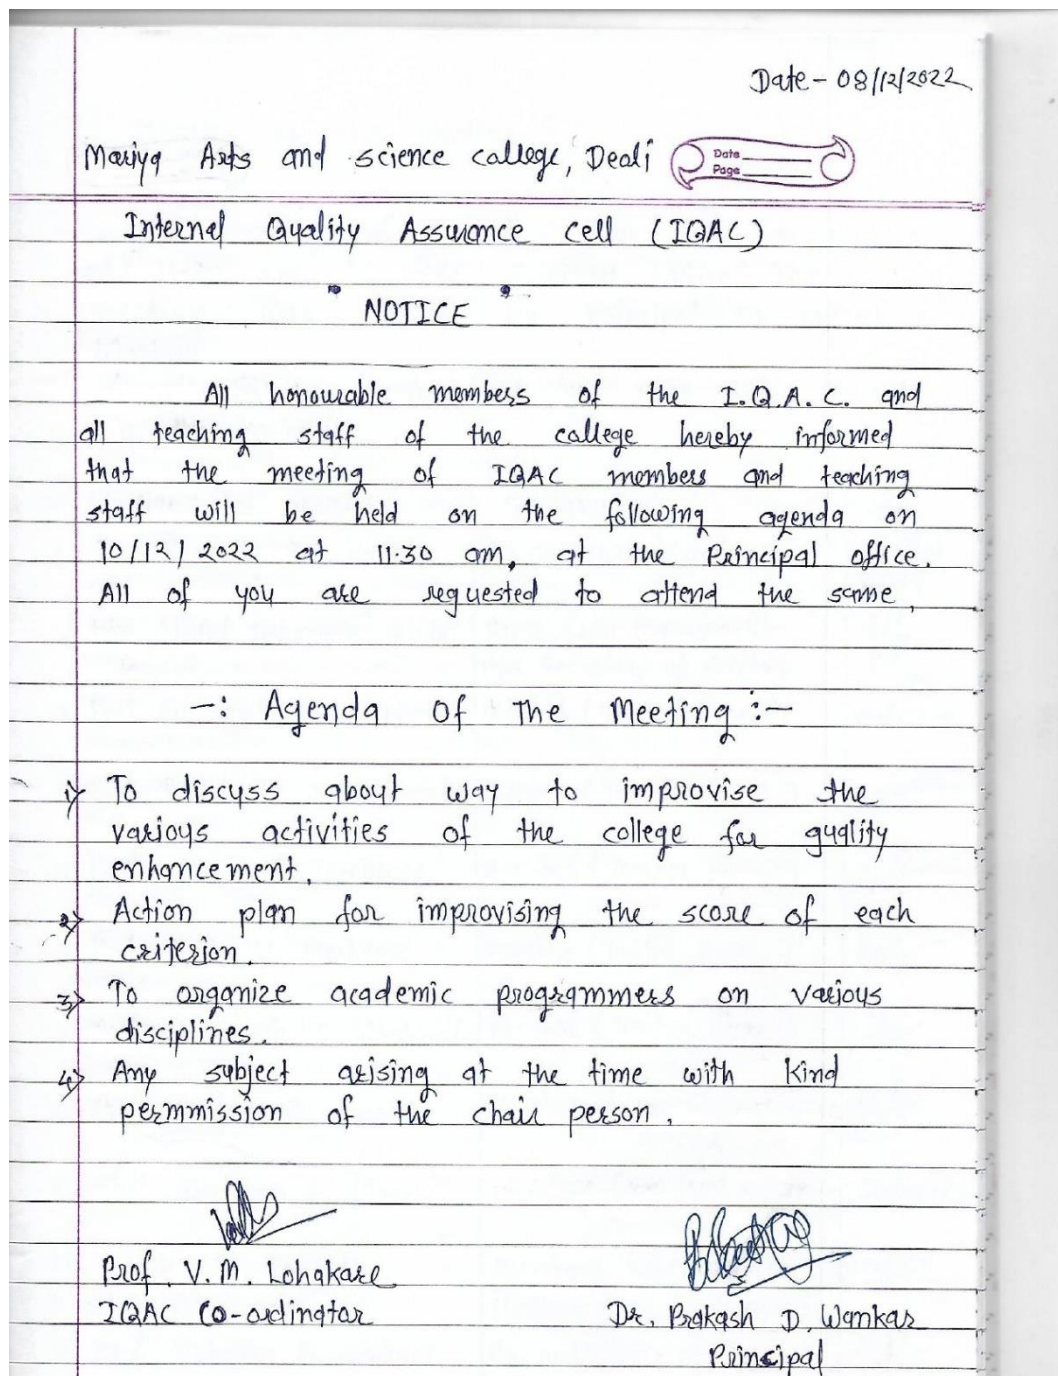 Date - 08/12/2022
Mariya Arts and science college, Deali
Date
Page
Internal Quality Assurance cell (IQAC)
" NOTICE "
All honourable members of the I.Q.A.C. and
all teaching staff of the college hereby informed
that the meeting of IQAC members and teaching
staff will be held on the following agenda on
10/12/2022 at 11.30 am, at the Principal office.
All of you are requested to attend the same,
-: Agenda Of The Meeting :-
1) To discuss about way to improvise the
various activities of the college for quality
enhancement.
2) Action plan for improvising the score of each
criterion.
3) To organize academic programmers on various
disciplines.
4) Any subject arising at the time with kind
permmission of the chair person.
Prof. V. M. Lohakare
IQAC Co-ordinator
Dr. Prakash D. Wankar
Principal